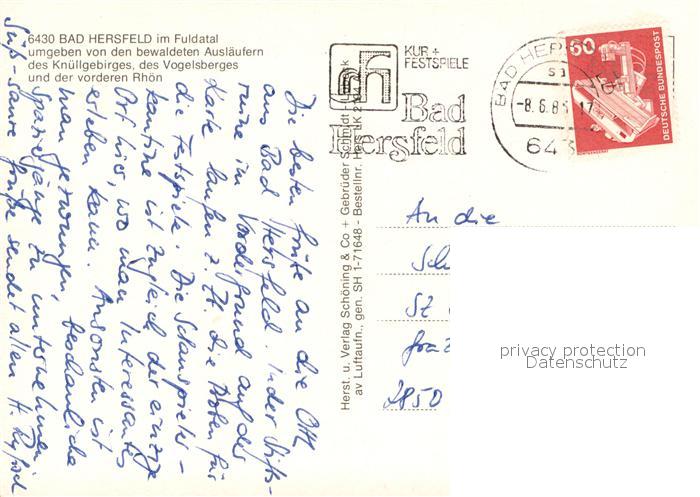 6430 BAD HERSFELD im Fuldatal
umgeben von den bewaldeten Ausläufern
des Knüllgebirges, des Vogelsberges
und der vorderen Rhön
KUR +
FESTSPIELE
Bad
Hersfeld
BAD HER
-8.6.8
17
643
60
DEUTSCHE BUNDESPOST
Herst. u. Verlag Schöning & Co + Gebrüder Schmidt
av Luftaufn., gen. SH 1-71648 - Bestellnr. Hers LK
Die besten Grüße an die OTL
aus Bad Hersfeld. In der Stifts-
ruine im Vordergrund auf der
Karte laufen z. Zt. die Proben für
die Festspiele. Die Schauspieler-
kantine ist zugleich der einzige
Ort hier, wo man Interessantes
erleben kann. Ansonsten ist
man gezwungen, beschauliche
Spaziergänge zu unternehmen
Süß-saure Grüße sendet allen H.
An die
Sch
St
Franz
2850
privacy protection
Datenschutz